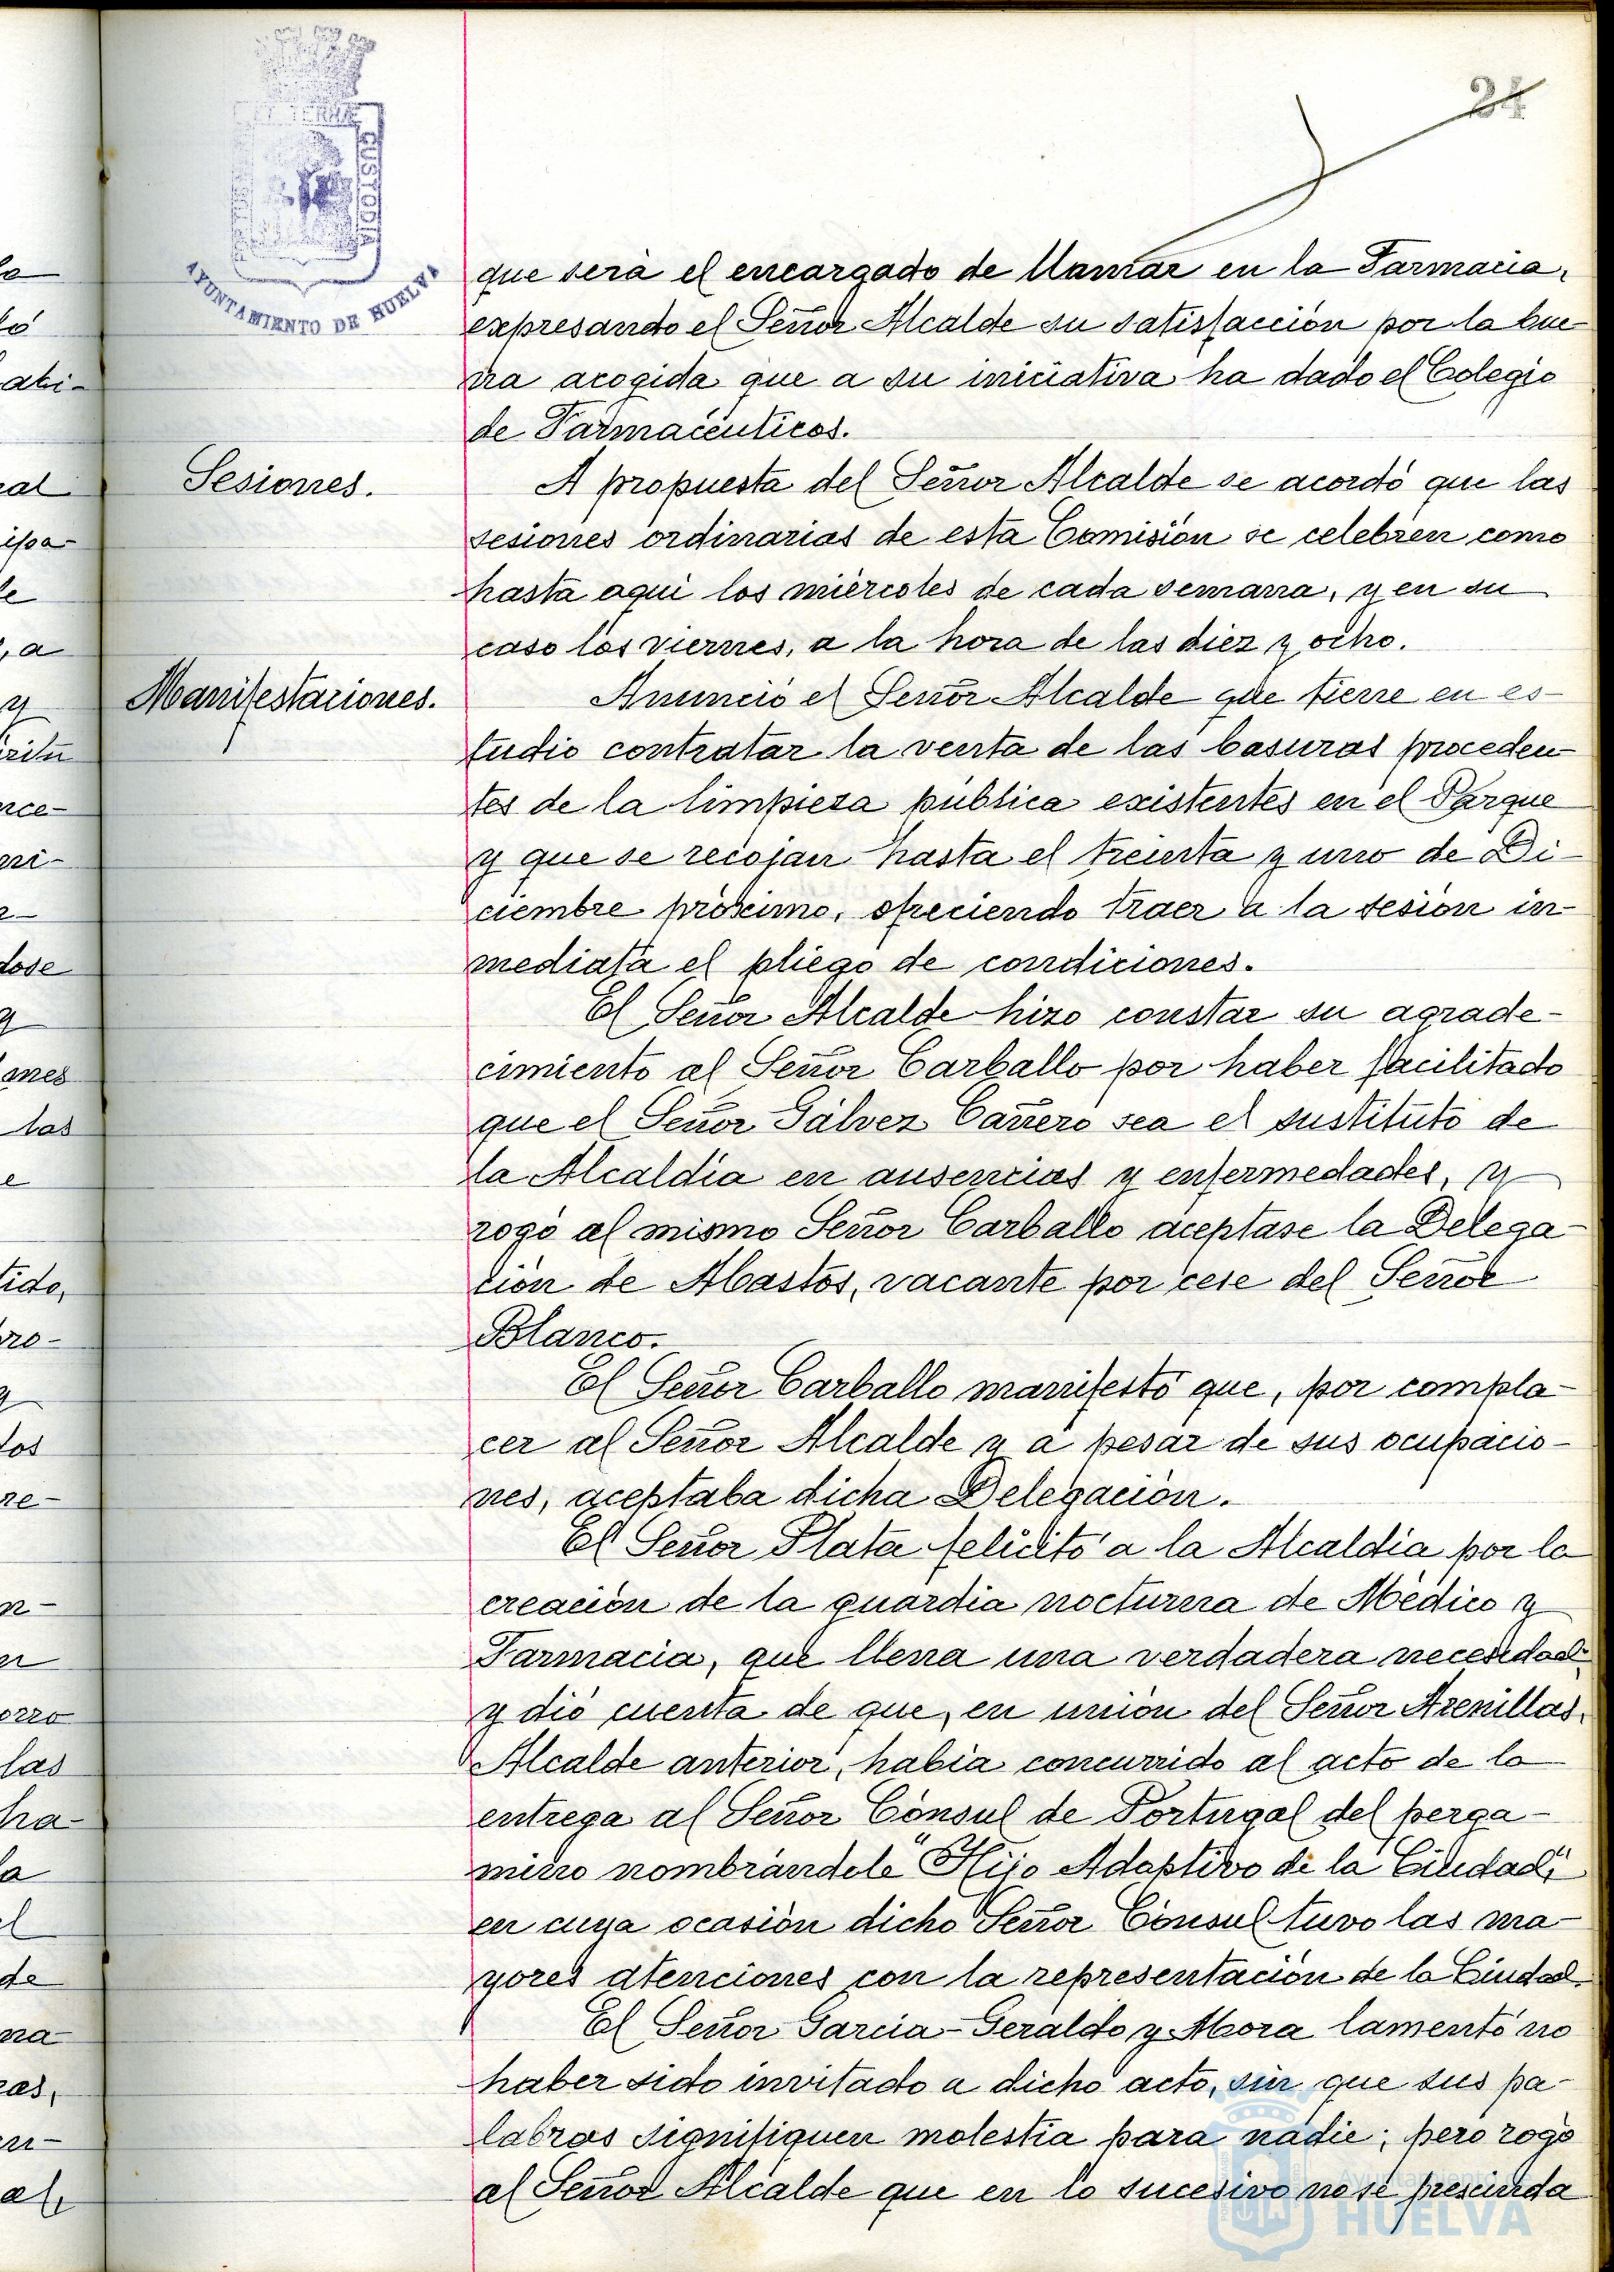 24
TERRÆ
CUSTODIA
AYUNTAMIENTO DE HUELVA
que será el encargado de llamar en la Farmacia,
expresando el Señor Alcalde su satisfacción por la bue-
na acogida que a su iniciativa ha dado el Colegio
de Farmacéuticos.
Sesiones.
A propuesta del Señor Alcalde se acordó que las
sesiones ordinarias de esta Comisión se celebren como
hasta aquí los miércoles de cada semana, y en su
caso los viernes, a la hora de las diez y ocho.
Manifestaciones.
Anunció el Señor Alcalde que tiene en es-
tudio contratar la venta de las basuras proceden-
tes de la limpieza pública existentes en el Parque
y que se recojan hasta el treinta y uno de Di-
ciembre próximo, ofreciendo traer a la sesión in-
mediata el pliego de condiciones.
El Señor Alcalde hizo constar su agrade-
cimiento al Señor Carballo por haber facilitado
que el Señor Gálvez Cañero sea el sustituto de
la Alcaldía en ausencias y enfermedades, y
rogó al mismo Señor Carballo aceptase la Delega-
ción de Abastos, vacante por cese del Señor
Blanco.
El Señor Carballo manifestó que, por compla-
cer al Señor Alcalde y a pesar de sus ocupacio-
nes, aceptaba dicha Delegación.
El Señor Plata felicitó a la Alcaldía por la
creación de la guardia nocturna de Médico y
Farmacia, que llena una verdadera necesidad,
y dió cuenta de que, en unión del Señor Arenillas,
Alcalde anterior, había concurrido al acto de la
entrega al Señor Cónsul de Portugal del perga-
mino nombrándole "Hijo Adoptivo de la Ciudad",
en cuya ocasión dicho Señor Cónsul tuvo las ma-
yores atenciones con la representación de la Ciudad.
El Señor García-Geraldo y Mora lamentó no
haber sido invitado a dicho acto, sin que sus pa-
labras signifiquen molestia para nadie; pero rogó
al Señor Alcalde que en lo sucesivo no se prescinda
Ayuntamiento de
HUELVA